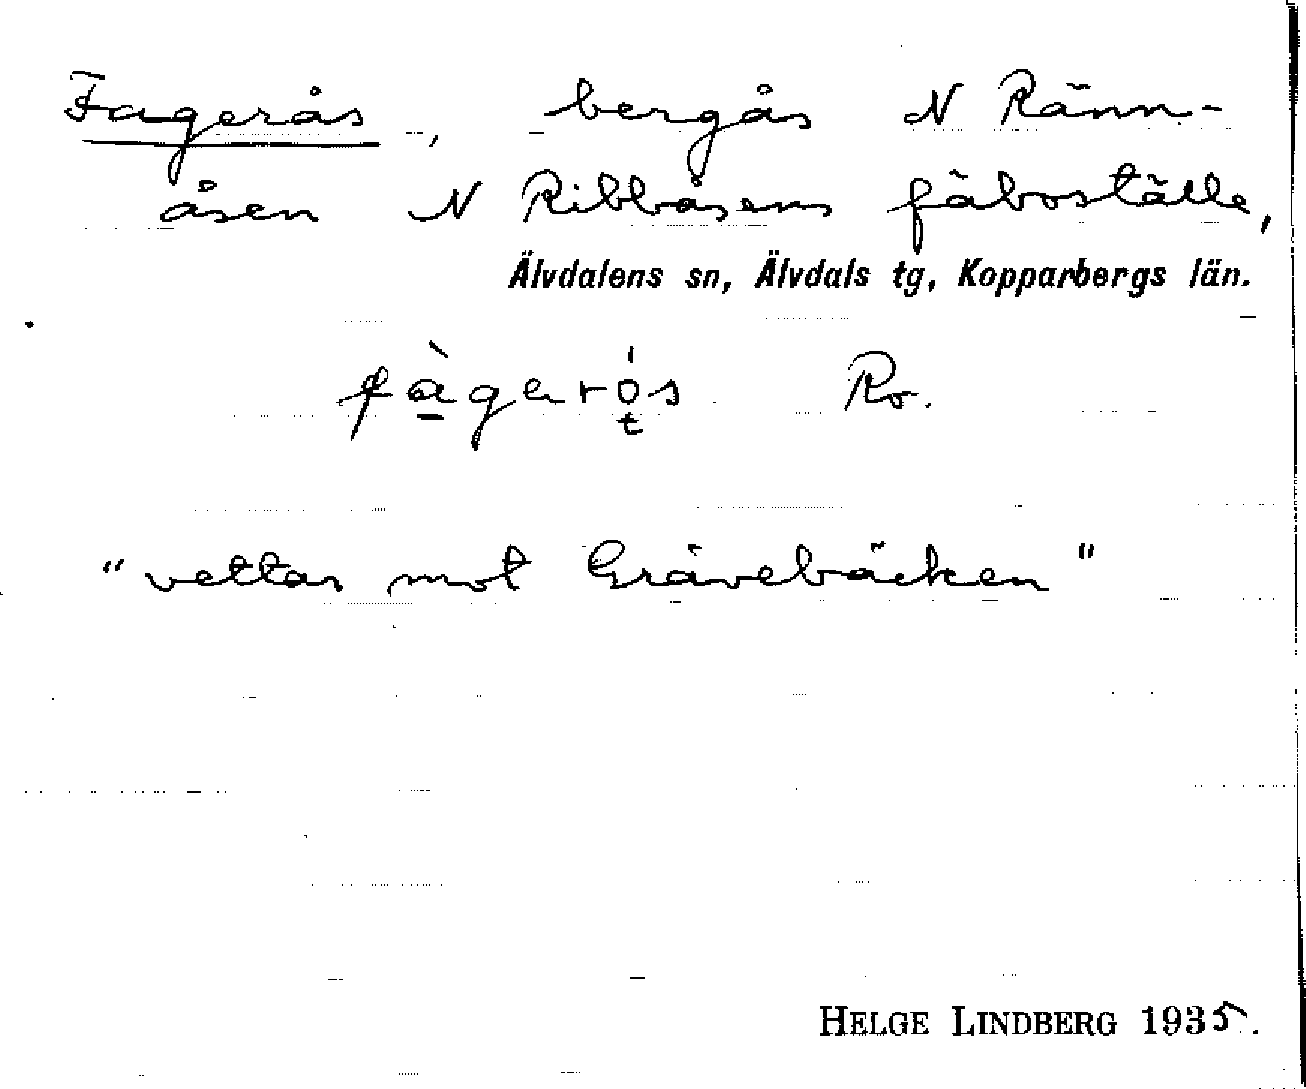 Fagerås, bergås N Ränn-
åsen N Ribbåsens fäboställe,
Älvdalens sn, Älvdals tg, Kopparbergs län.
fàgerós Ro.
"vettar mot Grävebäcken"
HELGE LINDBERG 1935.